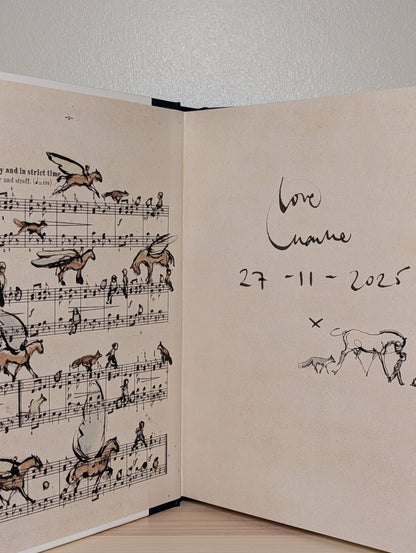 y and in strict time
r and streff.
Love
Charlie
27 - 11 - 2025
x